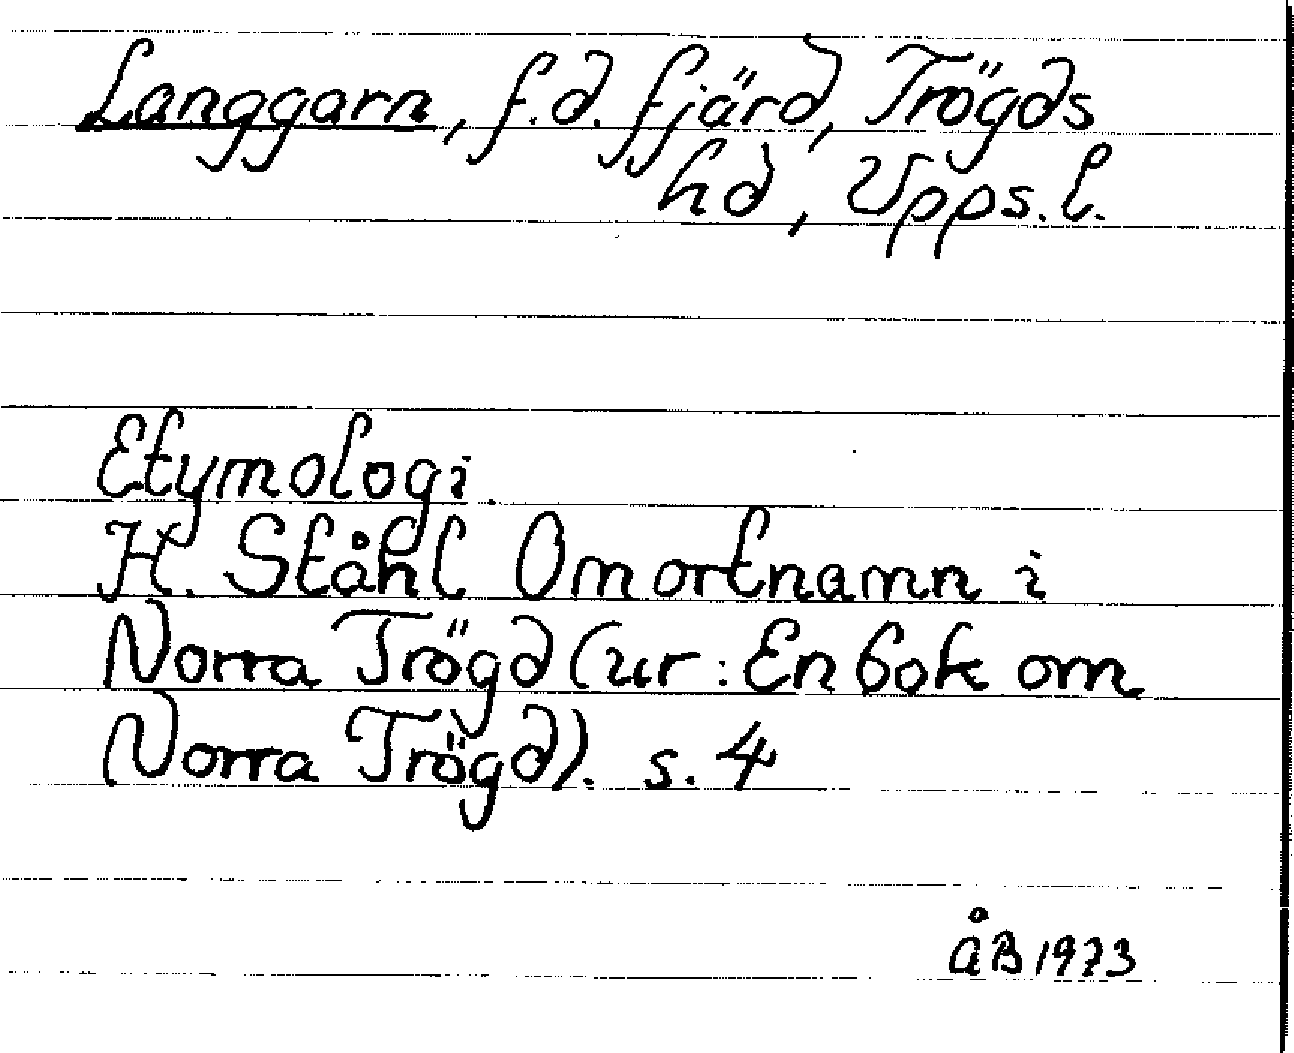 Langgarn, f.d. fjärd, Trögds
hd, Upps. l.
Etymologi
H. Ståhl Om ortnamn i
Norra Trögd (ur: En bok om
Norra Trögd). s. 4
ÅB 1973